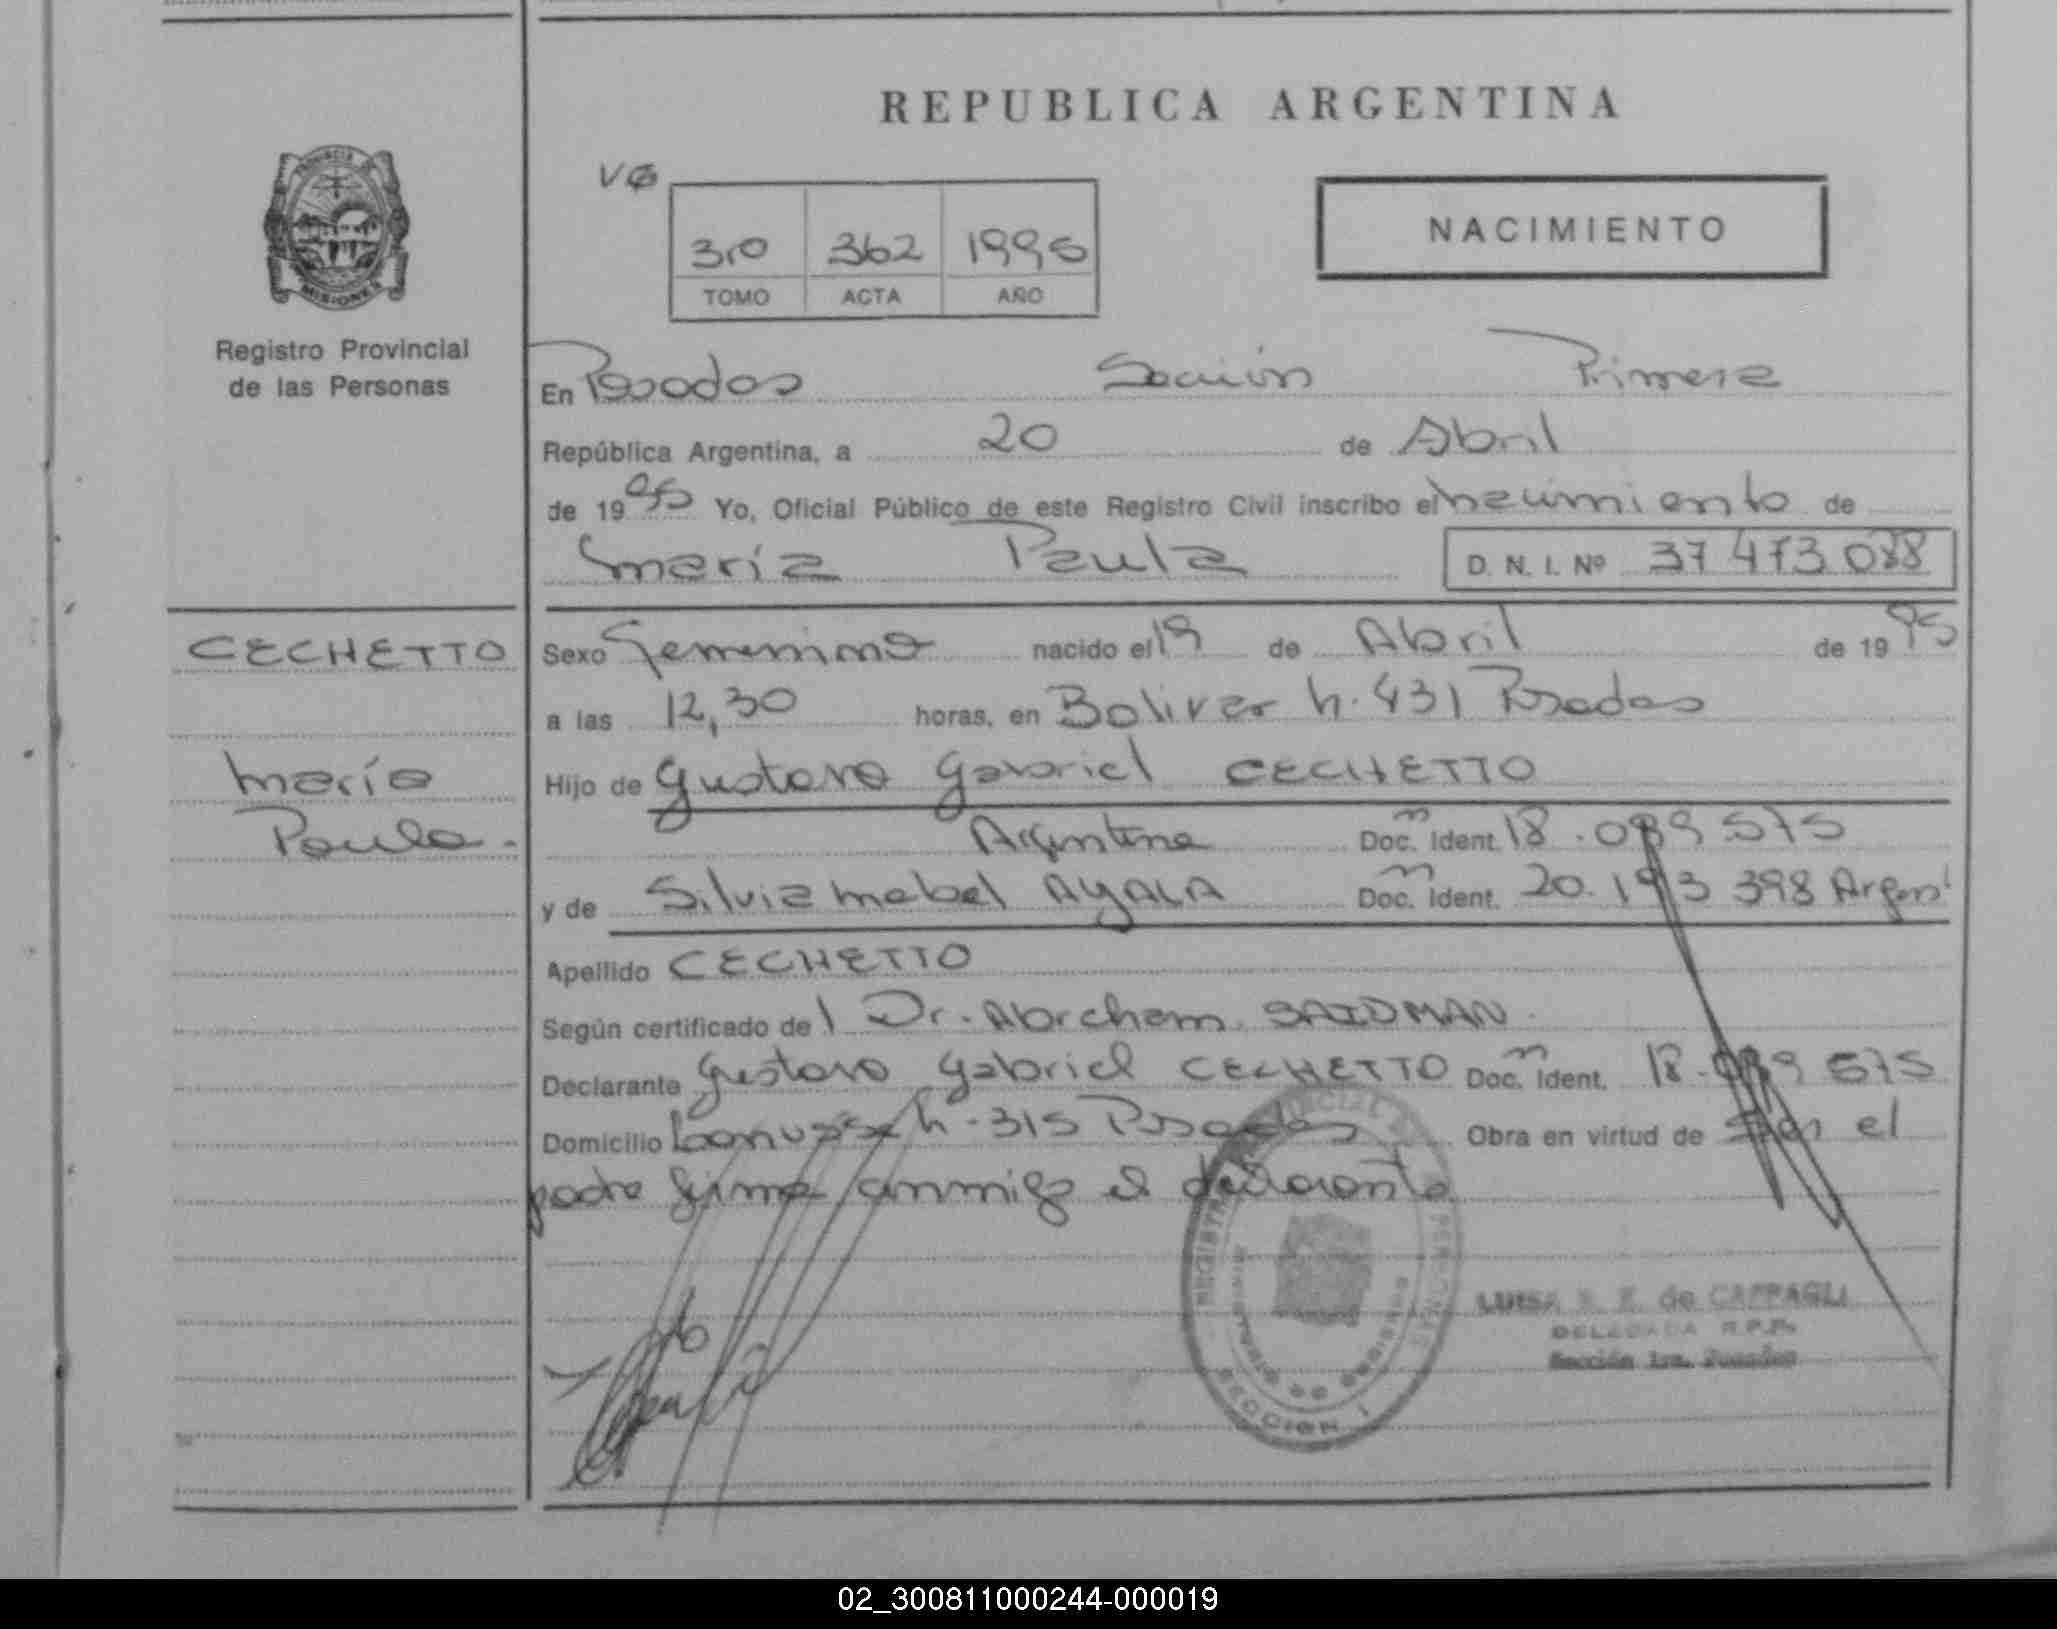 REPUBLICA ARGENTINA
PROVINCIA DE
MISIONES
Registro Provincial
de las Personas
3,0 362 1995
TOMO ACTA AÑO
NACIMIENTO
En Posadas Sección Primera
República Argentina, a 20 de Abril
de 1995 Yo, Oficial Público de este Registro Civil inscribo el nacimiento de
María Paula D. N. I. Nº 37 473.088
CECHETTO
María
Paula.
Sexo Femenino nacido el 19 de Abril de 1995
a las 12,30 horas, en Bolivar h. 431 Posadas
Hijo de Gustavo Gabriel CECHETTO
Argentina Doc. Ident. 18.089.575
y de Silvia Mabel AYALA Doc. Ident. 20.193 398 Argent
Apellido CECHETTO
Según certificado del Dr. Abraham SAIDMAN
Declarante Gustavo Gabriel CECHETTO Doc. Ident. 18.089 575
Domicilio Lanusse h. 315 Posadas Obra en virtud de ser el
padre firma conmigo el declarante
REGISTRO PROVINCIAL DE LAS PERSONAS
SECCION 1
LUISA de CAPPAGLI
DELEGADA R.P.P.
Sección 1ra. Posadas
02_300811000244-000019